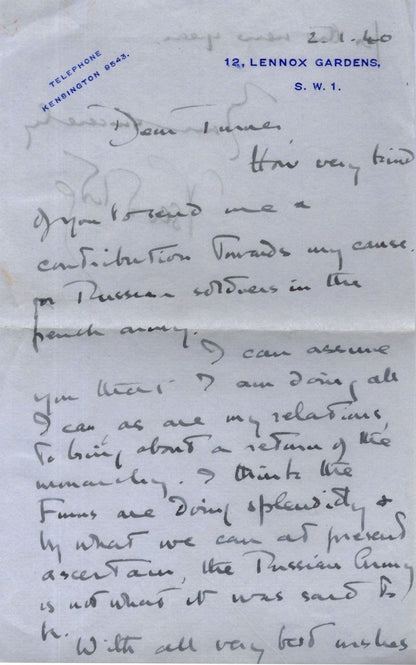 2.1.40
TELEPHONE
KENSINGTON 9543.
12, LENNOX GARDENS,
S. W. 1.
Dear Turner,
How very kind
of you to send me a
contribution towards my cause
for Russian soldiers in the
french army.
I can assure
you that I am doing all
I can, as are my relations,
to bring about a return of the
monarchy. I think the
Finns are doing splendidly &
by what we can at present
ascertain, the Russian Army
is not what it was said to
be.
With all very best wishes